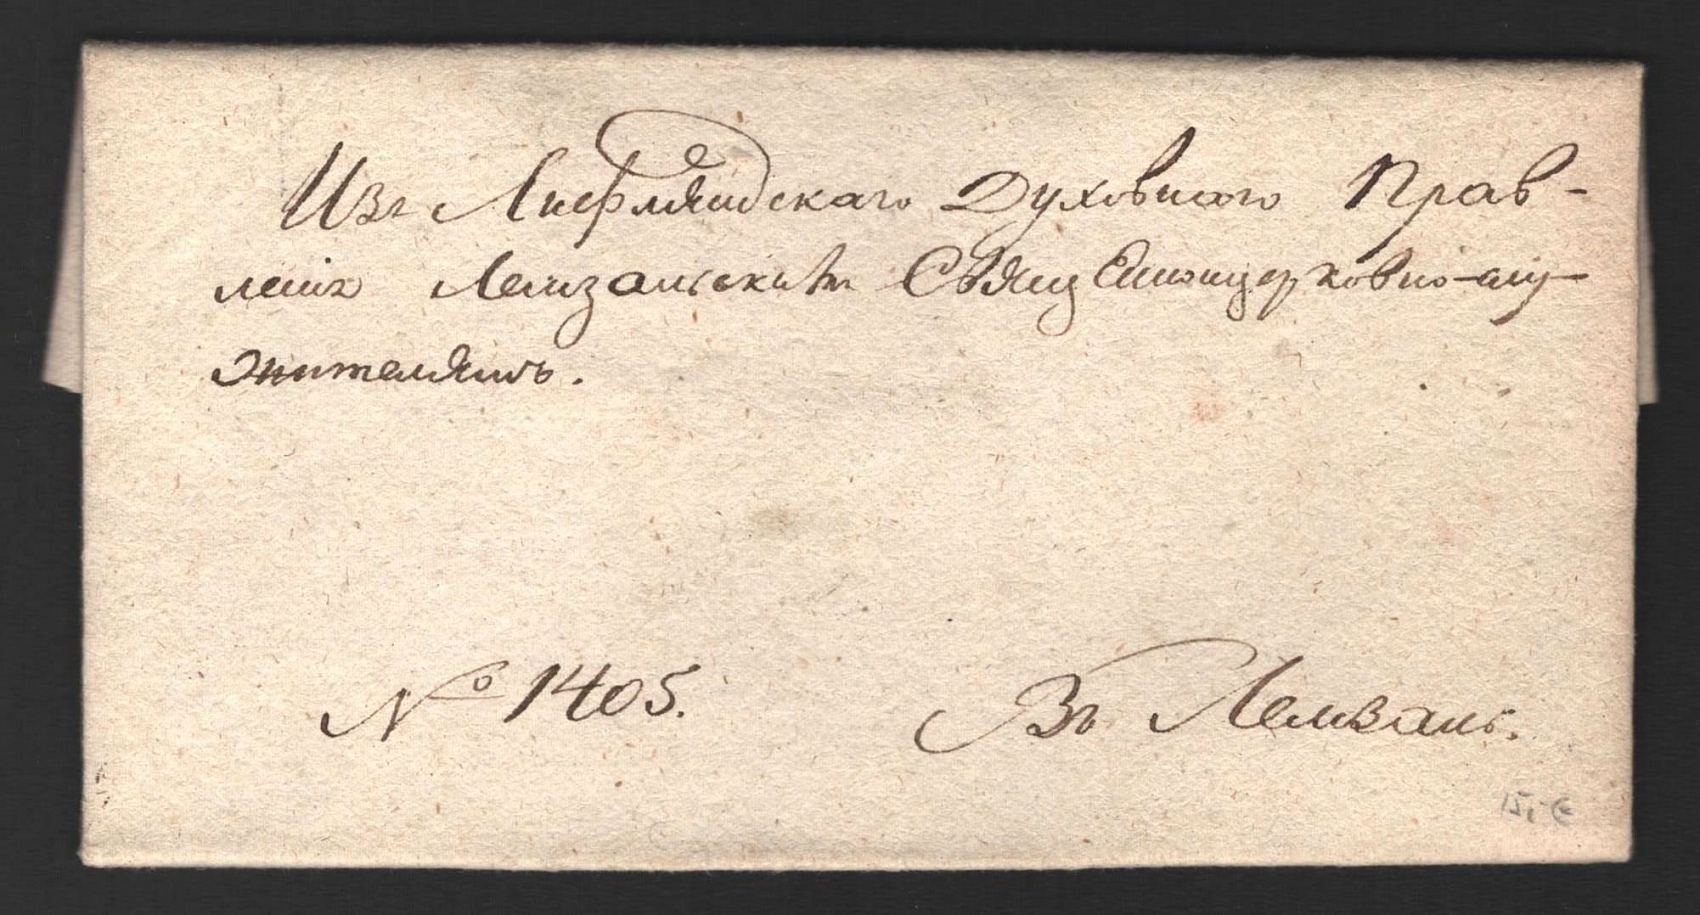 Изъ Лифляндскаго Духовнаго Прав-
ленія Лемзальскимъ Священноцерковно-слу-
жителямъ.
№ 1405.
Въ Лемзаль.
15,- €